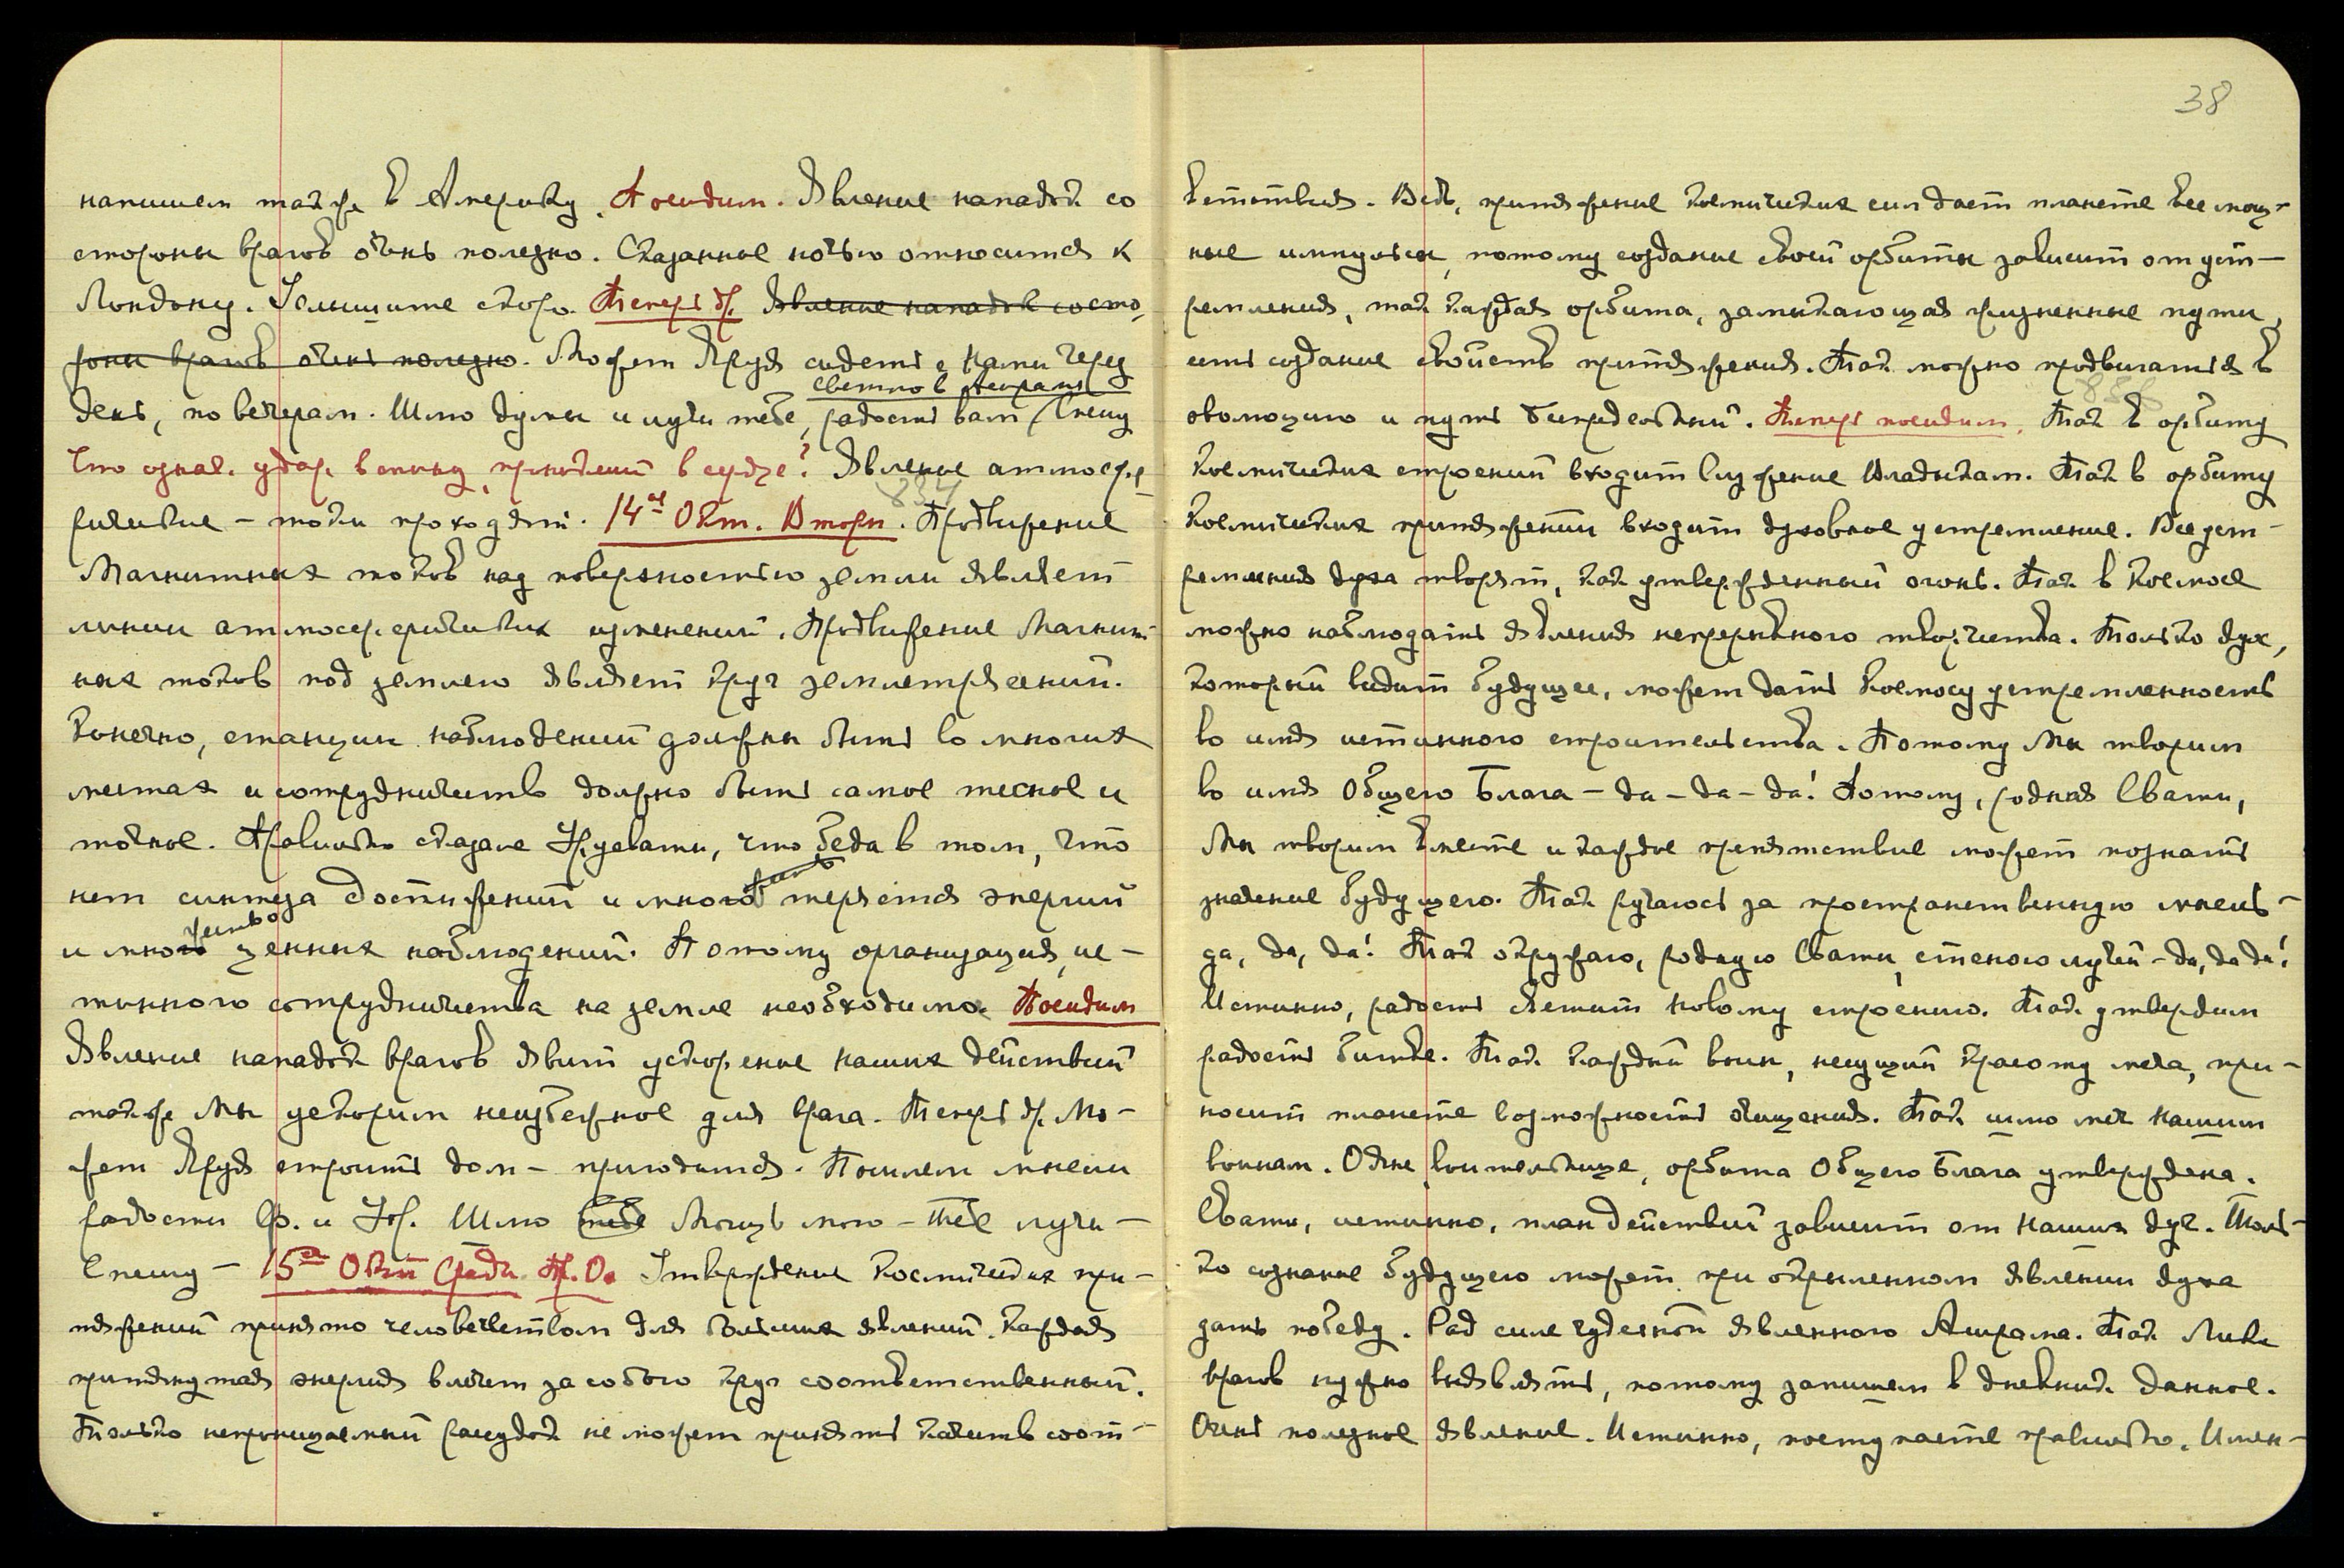 напишем также в Америку. Посидим. Явление нападок со
стороны врагов очень полезно. Сказанное ночью относится к
Лондону. Услышите скоро. Теперь др. ~~Явление нападок со сто-~~
~~роны врагов очень полезно~~. Может Яруя сидеть с Нами через
светло в Ашраме
день, по вечерам. Шлю думы и лучи тебе, радость вам / Спешу
Что означ. удар в спину, проникший в сердце? Явление атмосфе-
837
рическое – токи проходят. 14ое Окт. Вторн. Продвижение
Магнитных токов над поверхностью земли являет
линии атмосферических изменений. Продвижение Магнит-
ных токов под землею являет круг землетрясений.
Конечно, станции наблюдений должны быть во многих
местах и сотрудничество должно быть самое тесное и
точное. Правильно сказала Урусвати, что беда в том, что
нет синтеза достижений и много теряется энергий
и много ценных наблюдений. Потому организация ис-
тинного сотрудничества на земле необходима. Посидим
Явление нападок врагов явит ускорение наших действий
также Мы ускорим неизбежное для врага. Теперь др. Мо-
жет Яруя строить дом – пригодится. Пошлем мысли
радости Ф. и Ур. Шлю тебе Мощь мою – тебе лучи –
Спешу – 15ое Окт Среда Пр. О. Утверждение космических при-
тяжений принято человечеством для больших явлений. Каждая
притянутая энергия влечет за собою круг соответственный.
Только непроницаемый рассудок не может принять качеств соот-
38
ветствия. Ведь, притяжение космических сил дает планете все мощ-
ные импульсы, потому создание своей орбиты зависит от уст-
ремления, так каждая орбита, замыкающая жизненные пути,
есть создание свойств притяжения. Так можно продвигаться в
838
эволюцию и путь беспредельный. Теперь посидим. Так в орбиту
космических строений входит служение Владыкам. Так в орбиту
космических притяжений входит духовное устремление. Все уст-
ремления духа творят, как утвержденный огонь. Так в Космосе
можно наблюдать явления непрерывного творчества. Только дух,
который видит будущее, может дать Космосу устремленность
во имя истинного строительства. Потому Мы творим
во имя Общего Блага – да – да – да! Потому, родная Свати,
Мы творим вместе и каждое препятствие может познать
значение будущего. Так ручаюсь за пространственную мысль –
да, да, да! Так окружаю, родную Свати, стеною лучей – да, да да!
Истинно, радость светит новому строению. Так утвердим
радость битве. Так каждый воин, несущий красоту меча, при-
носит планете возможность очищения. Так шлю меч нашим
воинам. Огне воительница, орбита Общего Блага утверждена.
Свати, истинно, план действий зависит от наших дух. Толь-
ко сознание будущего может при окрыленном явлении духа
дать победу. Рад силе чудесной явленного Ашрама. Так Лики
врагов нужно выявлять, потому запишем в дневник данное.
Очень полезное явление. Истинно, поступаете правильно. Имен-